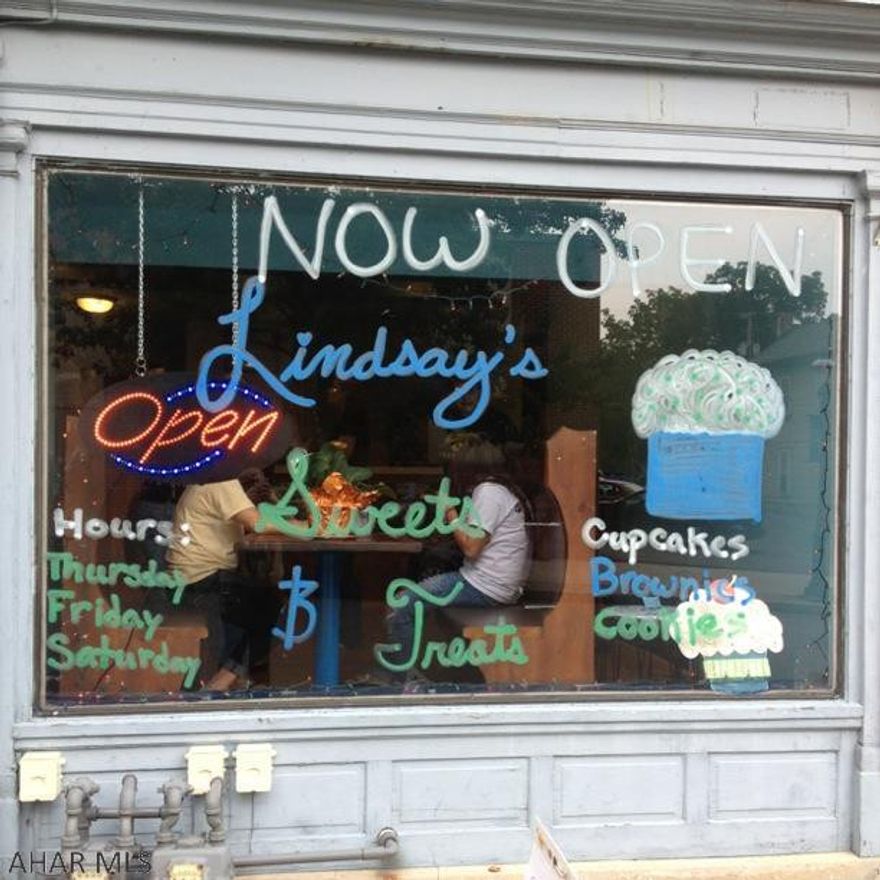 NOW OPEN
Lindsay's
Open
Sweets
&
Treats
Hours:
Thursday
Friday
Saturday
Cupcakes
Brownies
Cookies
AHAR MLS